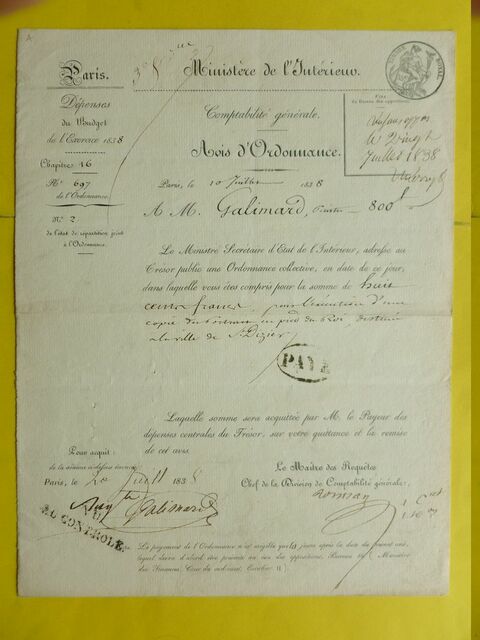 Paris.
Ministère de l'Intérieur.
Dépenses
du Budget
de l'Exercice 1838
Comptabilité générale.
Chapitre 16
Avis d'Ordonnance.
le Vingt
Juillet 1838
N° 697
de l'Ordonnance.
Paris, le 10 Juillet 1838
N° 2
de l'état de répartition joint
à l'Ordonnance.
A M. Galimard, Peintre 800 f
Le Ministre Secrétaire d'Etat de l'Intérieur, adresse au
Trésor public une Ordonnance collective, en date de ce jour,
dans laquelle vous êtes compris pour la somme de huit
cents francs, pour l'exécution d'une
copie du Portrait en pied du Roi destinée
à la ville de St Dizier
PAYÉ
Laquelle somme sera acquittée par M. le Payeur des
dépenses centrales du Trésor, sur votre quittance et la remise
de cet avis.
Pour acquit
Paris, le 20 Juillet 1838
Le Maître des Requêtes
Chef de la Division de Comptabilité générale,
Aug te Galimard
VU
AU CONTROLE
Le payement de l'Ordonnance n'est exigible que 10 jours après la date du présent avis,